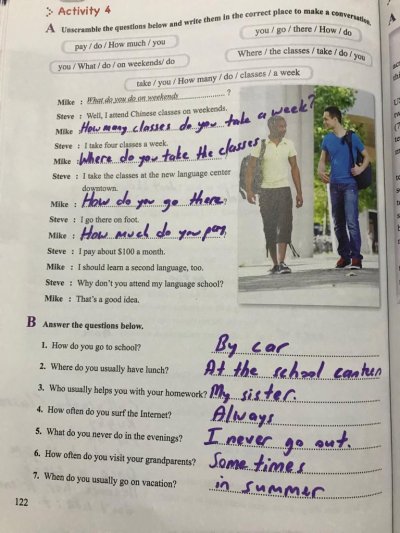 Activity 4
A Unscramble the questions below and write them in the correct place to make a conversation.
pay / do / How much / you
you / go / there / How / do
you / What / do / on weekends/ do
Where / the classes / take / do / you
take / you / How many / do / classes / a week
Mike : What do you do on weekends ?
Steve : Well, I attend Chinese classes on weekends.
Mike How many classes do you take a week?
Steve : I take four classes a week.
Mike : Where do you take the classes
Steve : I take the classes at the new language center
downtown.
Mike : How do you go there ?
Steve : I go there on foot.
Mike : How much do you pay ?
Steve : I pay about $100 a month.
Mike : I should learn a second language, too.
Steve : Why don't you attend my language school?
Mike : That's a good idea.
B Answer the questions below.
1. How do you go to school? By car
2. Where do you usually have lunch? At the school canteen
3. Who usually helps you with your homework? My sister.
4. How often do you surf the Internet? Always
5. What do you never do in the evenings? I never go out.
6. How often do you visit your grandparents? Sometimes
7. When do you usually go on vacation? in summer
122